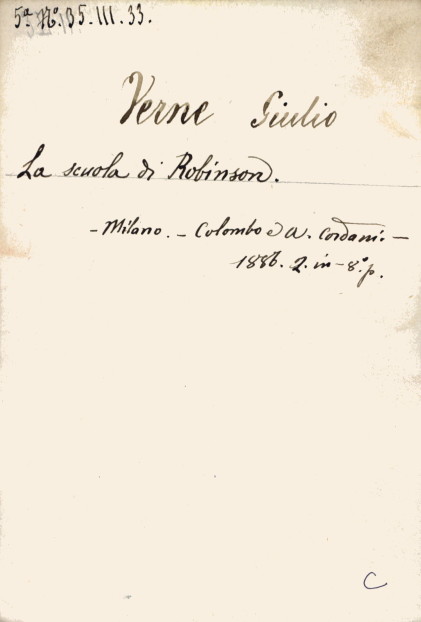 5ª Nº. 35. III. 33.
Verne Giulio
La scuola di Robinson.
- Milano. - Colombo e A. Cordani. -
1886. 2. in-8º. p.
C